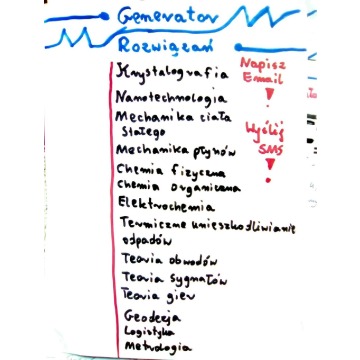 Generator
Rozwiązań
Krystalografia
Napisz
Email
Nanotechnologia
Mechanika ciała
Stałego
Wyślij
SMS
Mechanika płynów
Chemia fizyczna
Chemia organiczna
Elektrochemia
Termiczne unieszkodliwianie
odpadów
Teoria obwodów
Teoria sygnałów
Teoria gier
Geodezja
Logistyka
Metrologia